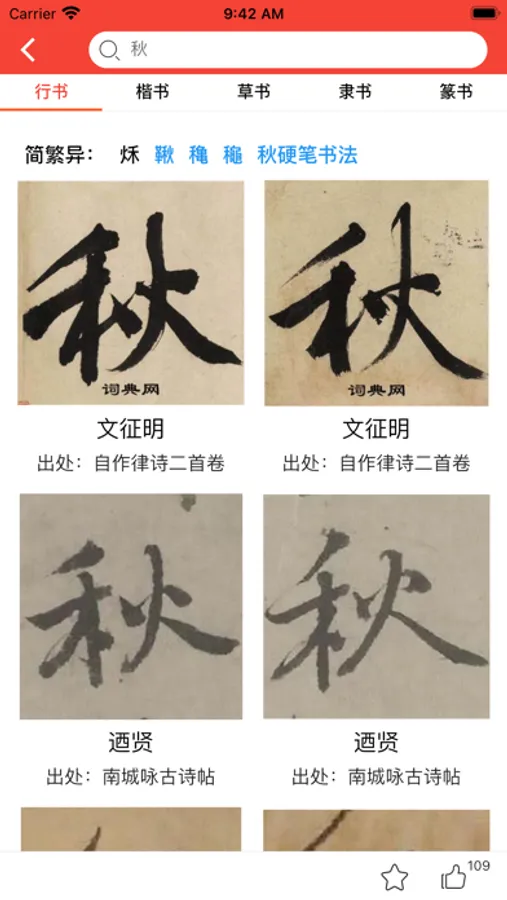 Carrier 9:42 AM
秋
行书 楷书 草书 隶书 篆书
简繁异： 秌 鞦 穐 龝 秋硬笔书法
秋 秋
词典网 词典网
文征明 文征明
出处：自作律诗二首卷 出处：自作律诗二首卷
秋 秋
迺贤 迺贤
出处：南城咏古诗帖 出处：南城咏古诗帖
109